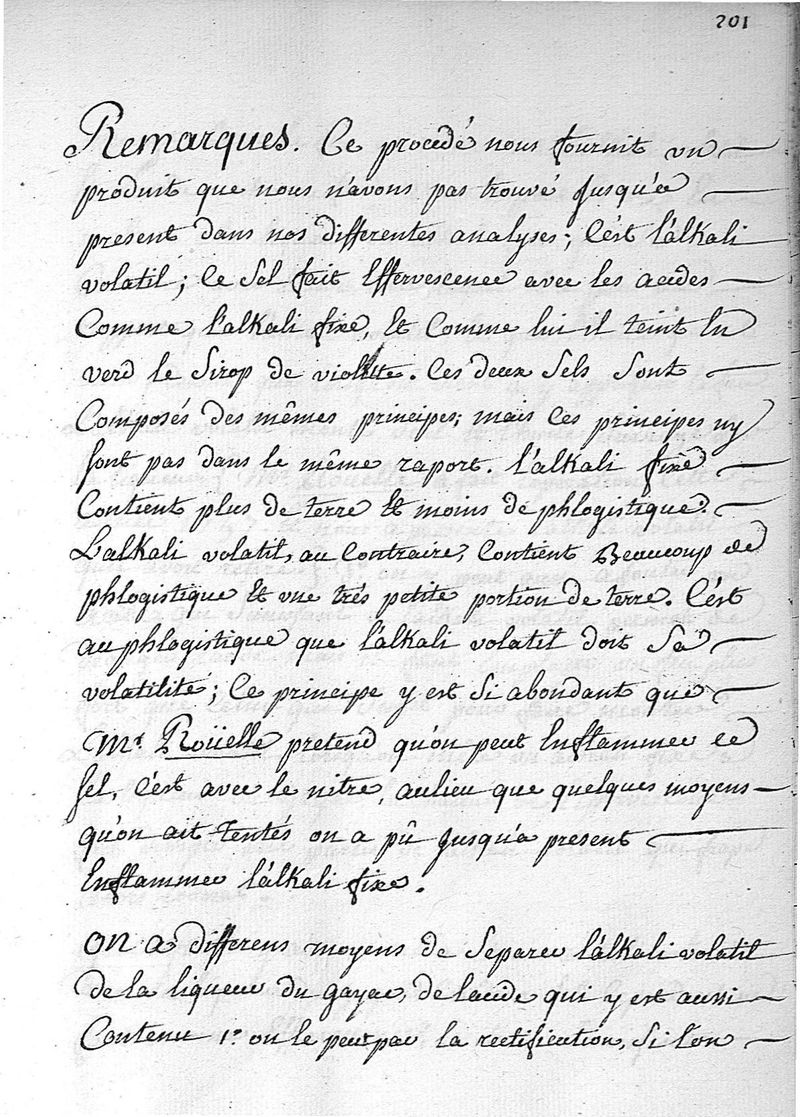 201
Remarques. Ce procedé nous fournit un
produit que nous n'avons pas trouvé Jusqu'a
present dans nos differentes analyses; C'est l'alkali
volatil; Ce Sel fait Effervescence avec les acides
Comme l'alkali fixe, Et Comme lui il teint En
verd le Sirop de violette. Ces deux Sels Sont
Composés des mêmes principes; mais Ces principes ny
sont pas dans le même raport. l'alkali fixe
Contient plus de terre Et moins de phlogistique.
L'alkali volatil, au Contraire, Contient Beaucoup de
phlogistique Et une très petite portion de terre. C'est
au phlogistique que l'alkali volatil doit Sa
volatilité; Ce principe y est Si abondant que
Mr. Roüelle pretend qu'on peut Enflammer ce
sel, C'est avec le nitre, aulieu que quelques moyens
qu'on ait tentés on a pû Jusqu'a present
Enflammer l'alkali fixe.
On a differens moyens de Separer l'alkali volatil
de la liqueur du gayac, de lacide qui y est aussi
Contenu 1.° on le peut par la rectification, Si l'on